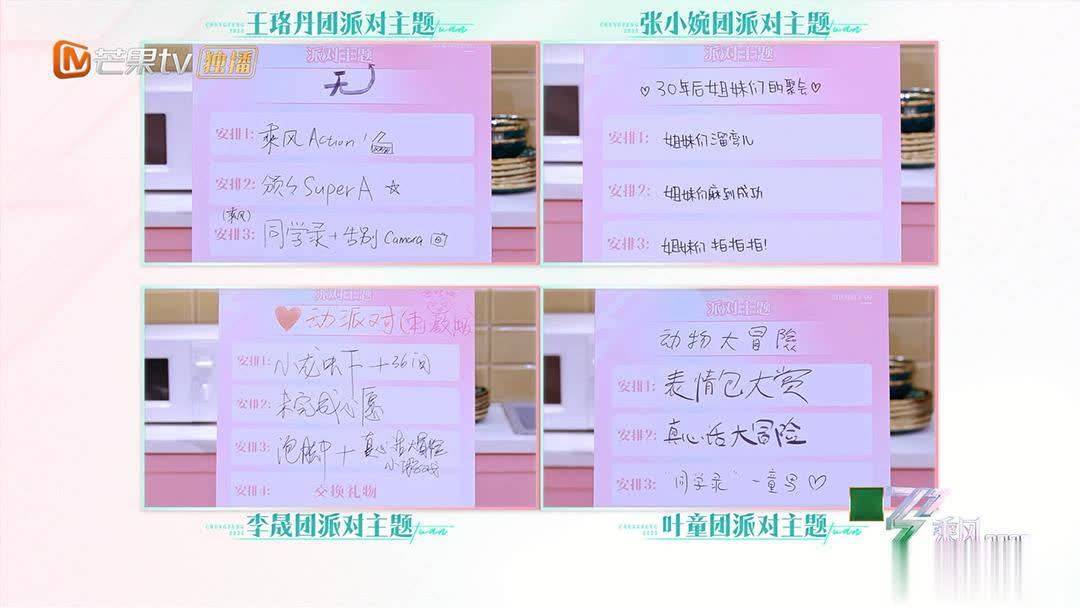 王珞丹团派对主题
张小婉团派对主题
芒果tv 独播
派对主题
无
安排1: 乘风 Action!
安排2: 颁个 Super A ☆
(乘风)
安排3: 同学录+告别 Camera
派对主题
♡30年后姐妹们的聚会♡
安排1: 姐妹们溜弯儿
安排2: 姐妹们麻到成功
安排3: 姐妹们 拍拍拍!
派对主题
❤动派对
安排1: 小龙虾下+36问
安排2: 未完成心愿
安排3: 泡脚+真心话大冒险
小游戏
安排4: 交换礼物
派对主题
动物大冒險
安排1: 表情包大赏
安排2: 真心话大冒险
安排3: "同学录"一童号♡
李晟团派对主题
叶童团派对主题
乘风